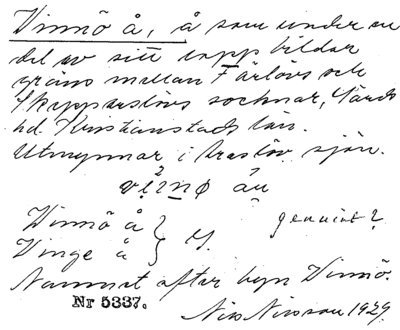 Vinnö å, å som under en
del av sitt lopp bildar
gräns mellan Färlövs och
Skepparslövs socknar, Gärds
hd. Kristianstads län.
Utmynnar i Araslövssjön.
Vinnö å
Vinge å
genuint?
Namnet efter byn Vinnö.
Nr 5337.
Nils Nilsson 1929